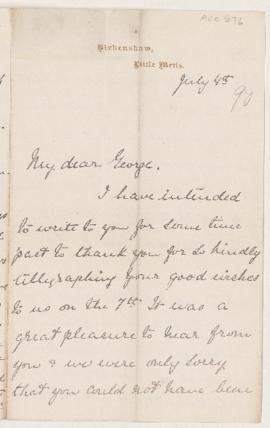 Acc 876
Birkenshaw,
Little Weris.
July 4th
90
My dear George.
I have intended
to write to you for some time
past to thank you for so kindly
tillygraphing your good wishes
to us on the 7th It was a
great pleasure to hear from
you & we were only sorry
that you could not have been